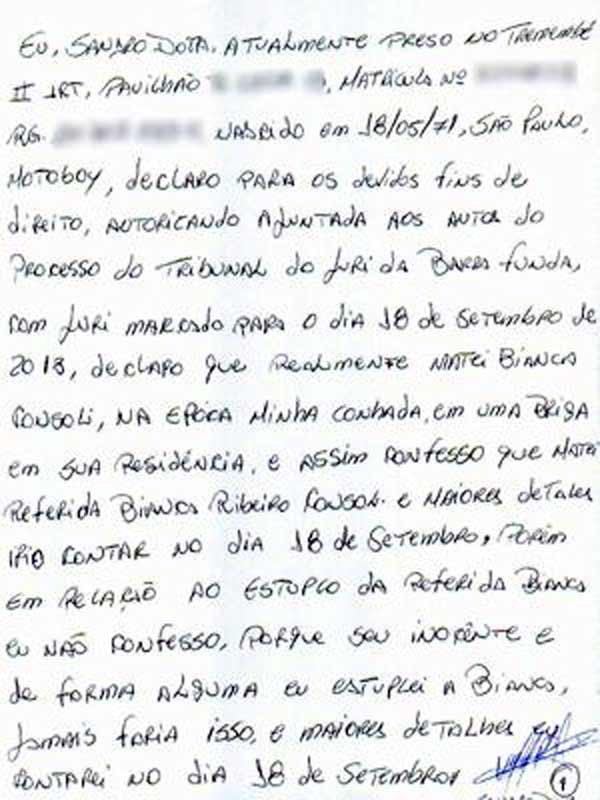 Eu, SANDRO DOTA, ATUALMENTE PRESO NO TREMEMBÉ
II IRT, PAVILHÃO , MATRICULA Nº
RG. NASCIDO em 18/05/71, SÃO PAULO,
MOTOBOY, declaro PARA os devidos fins de
direito, AUTORICANDO AJUNTADA AOS AUTOS do
PROCESSO do TRIBUNAL do Juri da BARRA funda,
com Juri marcado para o dia 18 de Setembro de
2013, declaro que Realmente MATEI BIANCA
CONSOLI, NA EPOCA MINHA CONHADA, em uma BRIGA
em SUA Residência, e ASSIM CONFESSO que MATEI
Referida Bianca Ribeiro Consoli e MAIORES deTALes
IREI CONTAR NO dia 18 de Setembro, Porém
em RELAÇÃO AO ESTUPLO da Referida Bianca
eu NÃO CONFESSO, PORque sou inocente e
de FORMA ALGUMA eu ESTUPLEI A BIANCA,
Jamais faria isso, e MAIORES deTALHES eu
CONTAREI NO dia 18 de Setembro,
1